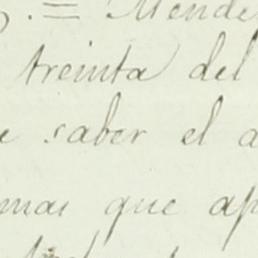 . = Mende
treinta del
e saber el a
mas que ap